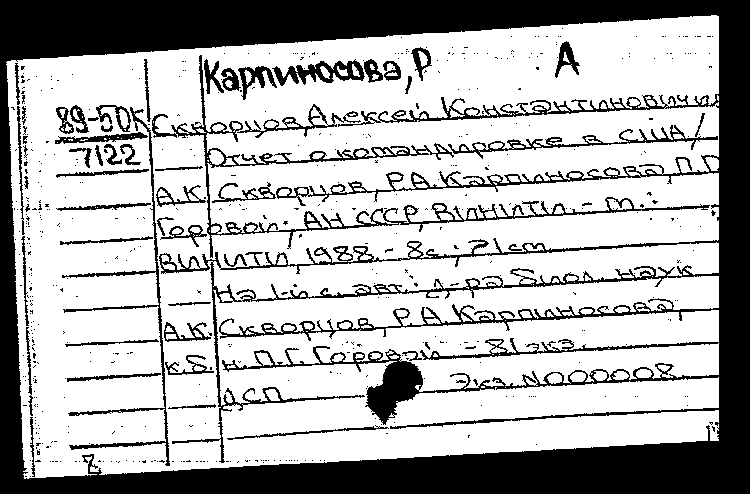 Карпиносова, Р А
89-50К Скворцов, Алексей Константинович и
7122 Отчет о командировке в США/
А.К. Скворцов, Р.А. Карпиносова, П.Г.
Горовой; АН СССР, ВИНИТИ. - М.:
ВИНИТИ, 1988. - 8с.; 21см
На 1-й с. авт.: д-ра биол. наук
А.К. Скворцов, Р.А. Карпиносова,
к.б.н. П.Г. Горовой - 81 экз.
ДСП Экз. N000008